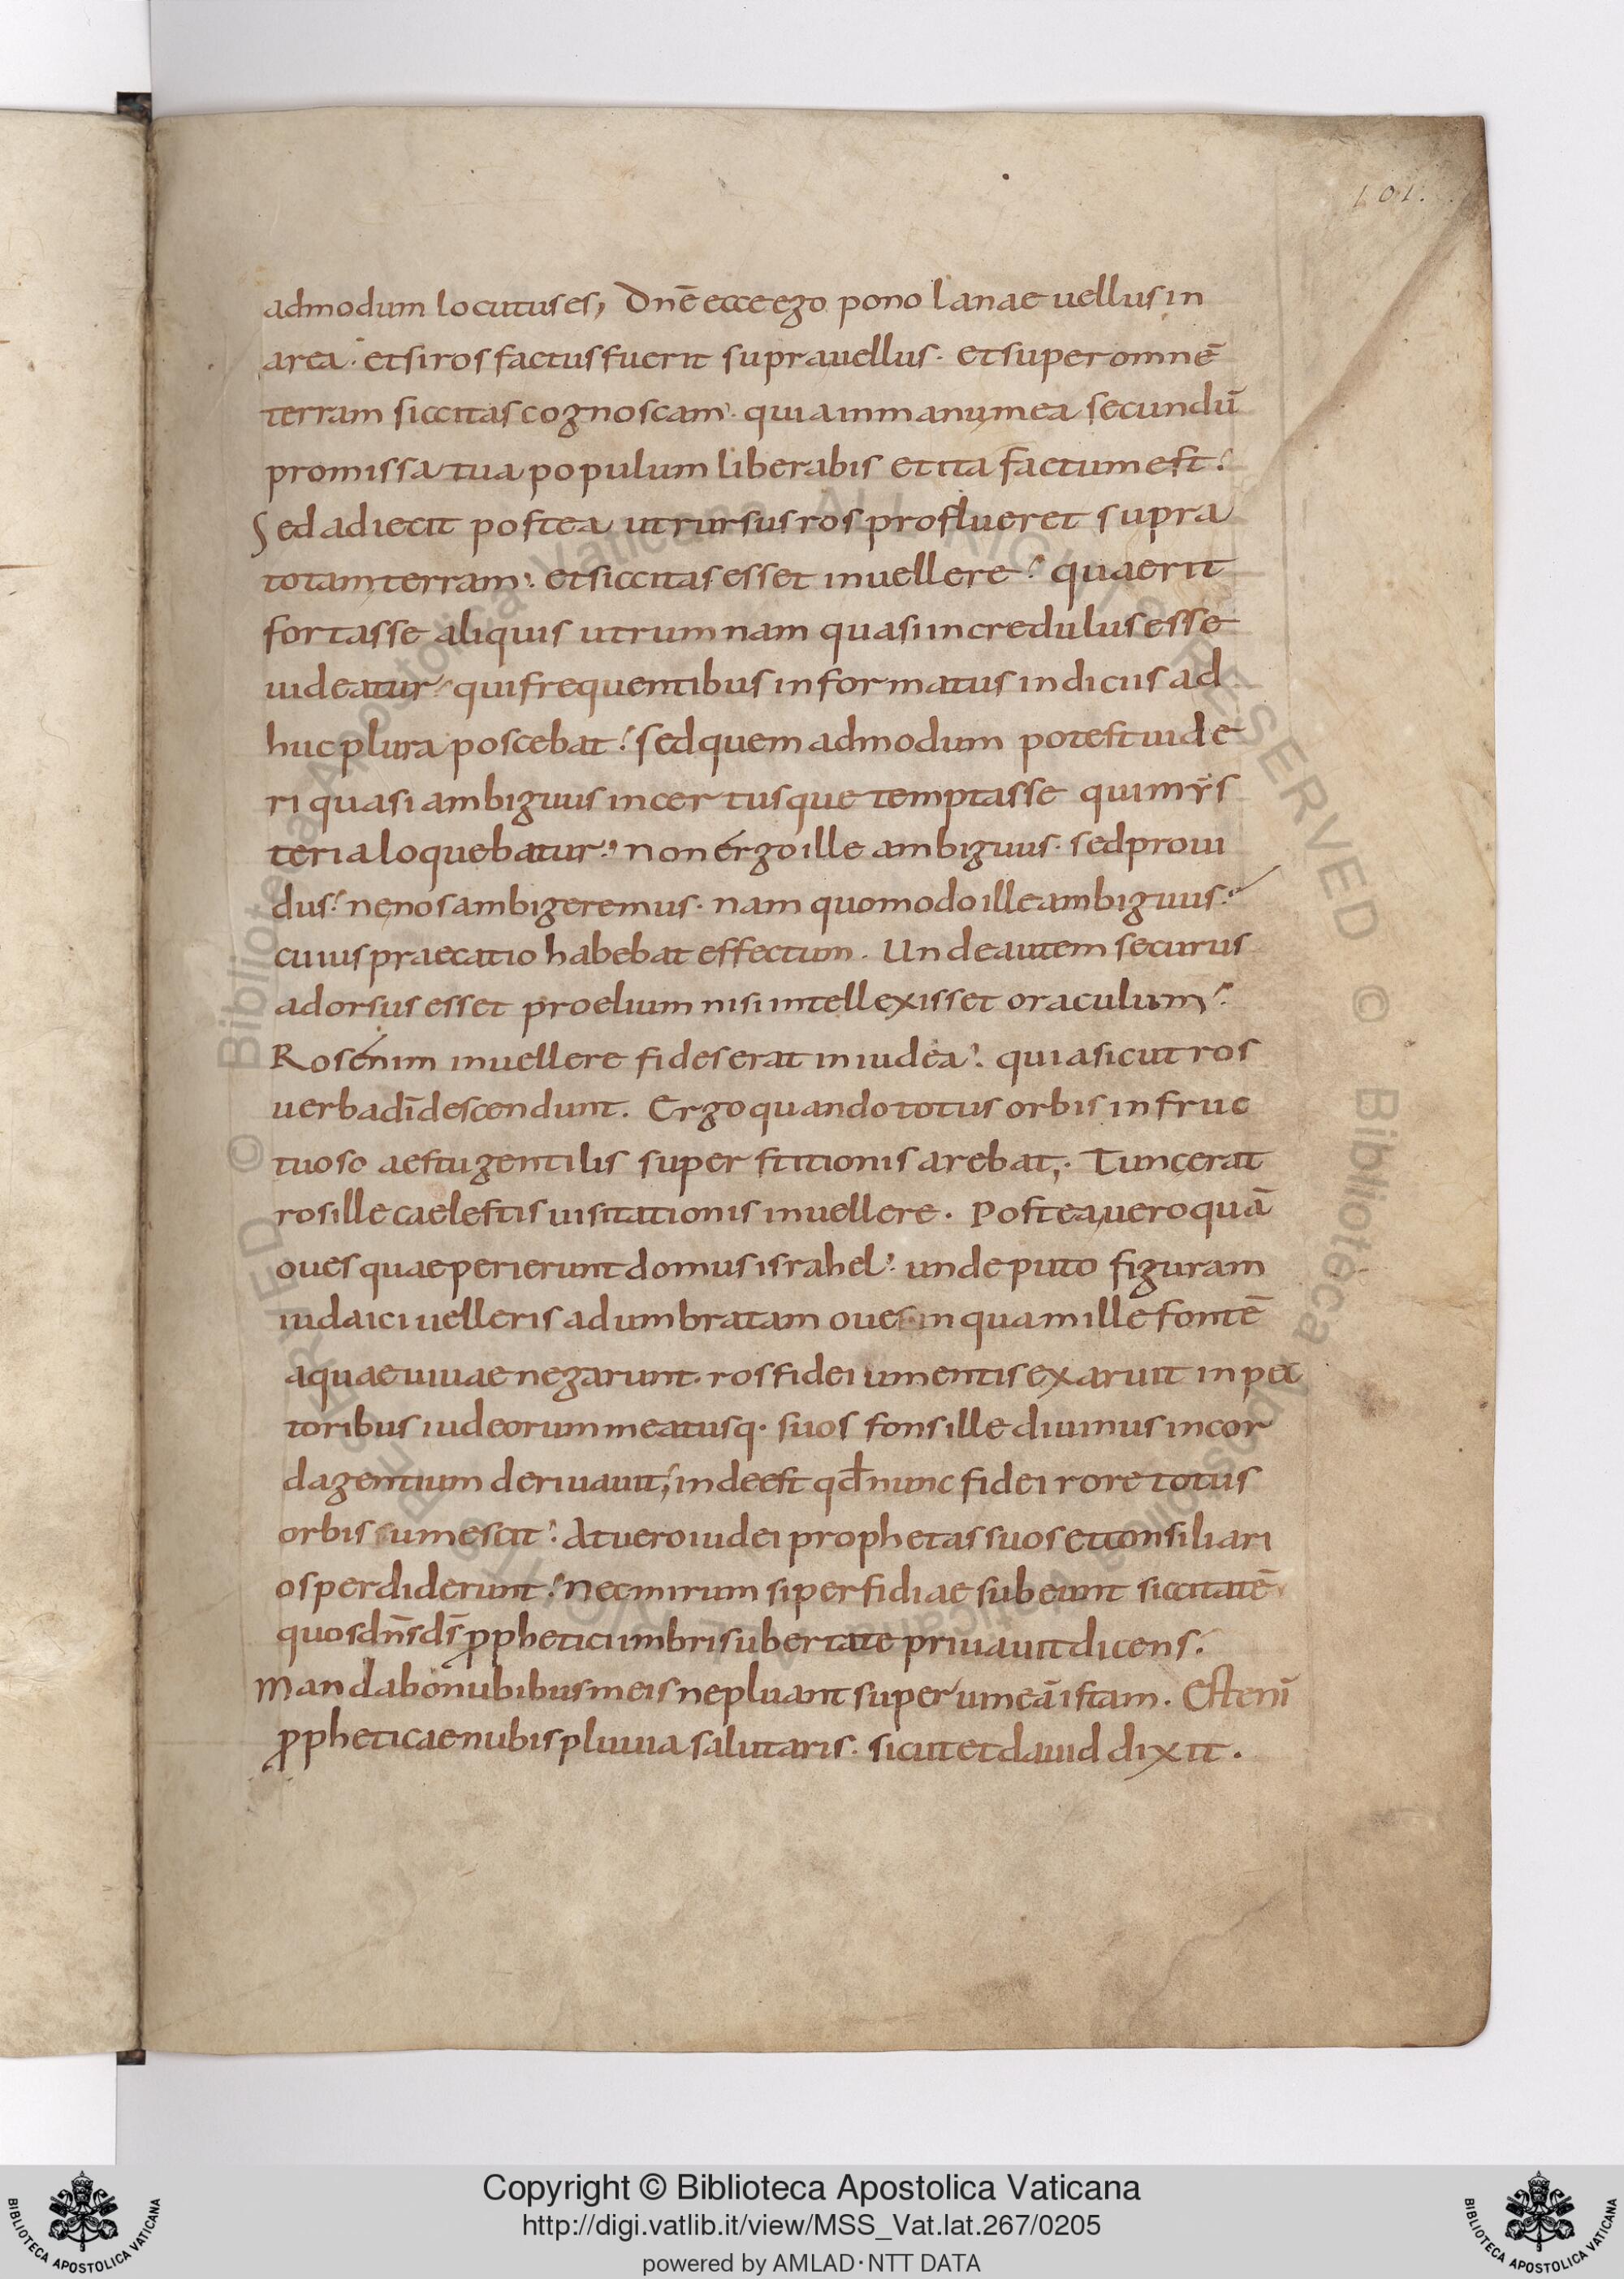 101.
admodum locutus es, Dnē ecce ego pono lanae uellus in
area. et si ros factus fuerit supra uellus. et super omnē
terram siccitas cognoscam. quia in manu mea secundū
promissa tua populum liberabis et ita factum est.
Sed adiecit postea ut rursus ros proflueret supra
totam terram. et siccitas esset in uellere. quaerit
fortasse aliquis utrumnam quasi incredulus esse
uideatur qui frequentibus informatus indiciis ad
huc plura poscebat. sed quem admodum potest uide
ri quasi ambiguus incertusque temptasse qui mẏs
teria loquebatur. non ergo ille ambiguus. sed proui
dus. ne nos ambigeremus. nam quomodo ille ambiguus.
cuius praecatio habebat effectum. Unde autem securus
adorsus esset proelium nisi intellexisset oraculum.
Ros enim in uellere fides erat in iudea. quia sicut ros
uerba dī descendunt. Ergo quando totus orbis infruc
tuoso aestu gentilis superstitionis arebat,. Tunc erat
ros ille caelestis uisitationis in uellere. Postea uero quā
oues quae perierunt domus israhel. unde puto figuram
iudaici uelleris adumbratam oues in quam ille fontē
aquae uiuae negarunt. ros fidei umentis exaruit in pec
toribus iudeorum meatusq. suos fons ille diuinus in cor
da gentium deriuauit; inde est qđ nunc fidei rore totus
orbis umescit. At uero iudei prophetas suos et consiliari
os perdiderunt. Nec mirum si perfidiae subeunt siccitatē
quos dn̄s ds̄ ꝓphetici imbris ubertate priuauit dicens.
Mandabo nubibus meis ne pluant super uineā istam. Est enī
ꝓpheticae nubis pluuia salutaris. sicut et dauid dixit.
© Biblioteca Apostolica Vaticana ALL RIGHTS RESERVED © Biblioteca Apostolica Vaticana ALL RIGHTS RESERVED
Copyright © Biblioteca Apostolica Vaticana
http://digi.vatlib.it/view/MSS_Vat.lat.267/0205
powered by AMLAD·NTT DATA
BIBLIOTECA APOSTOLICA VATICANA
BIBLIOTECA APOSTOLICA VATICANA